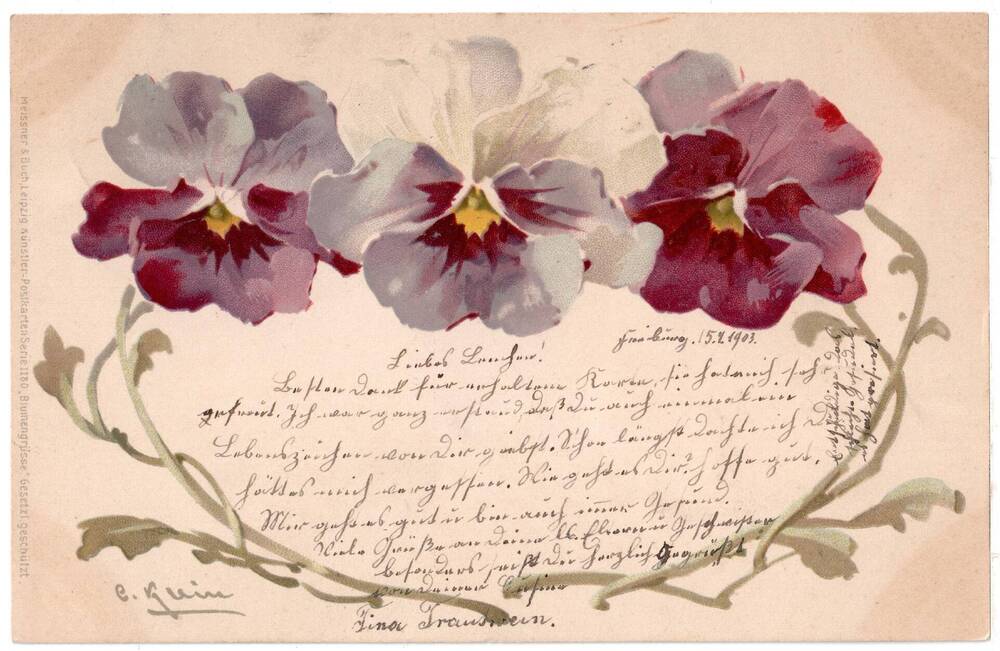 Meissner & Buch, Leipzig Künstler-Postkarten Serie 1180 „Blumengrüsse" Gesetzl. geschützt.
Freiburg. 15.7.1903.
Liebes Lenchen!
Besten Dank für erhaltene Karte, sie hat mich sehr
gefreut. Ich war ganz erstaund, daß Du auch einmal ein
Lebenszeichen von Dir giebst. Schon längst dachte ich Du
hättes mich vergessen. Wie geht es Dir? hoffe gut.
Mir geht es gut u bin auch immer Gesund.
Viele Grüße an Deine lb. Eltern u Geschwister
besonders seist Du herzlich Gegrüßt
von Deiner Cusine
Tina Trautwein.
C. Klein